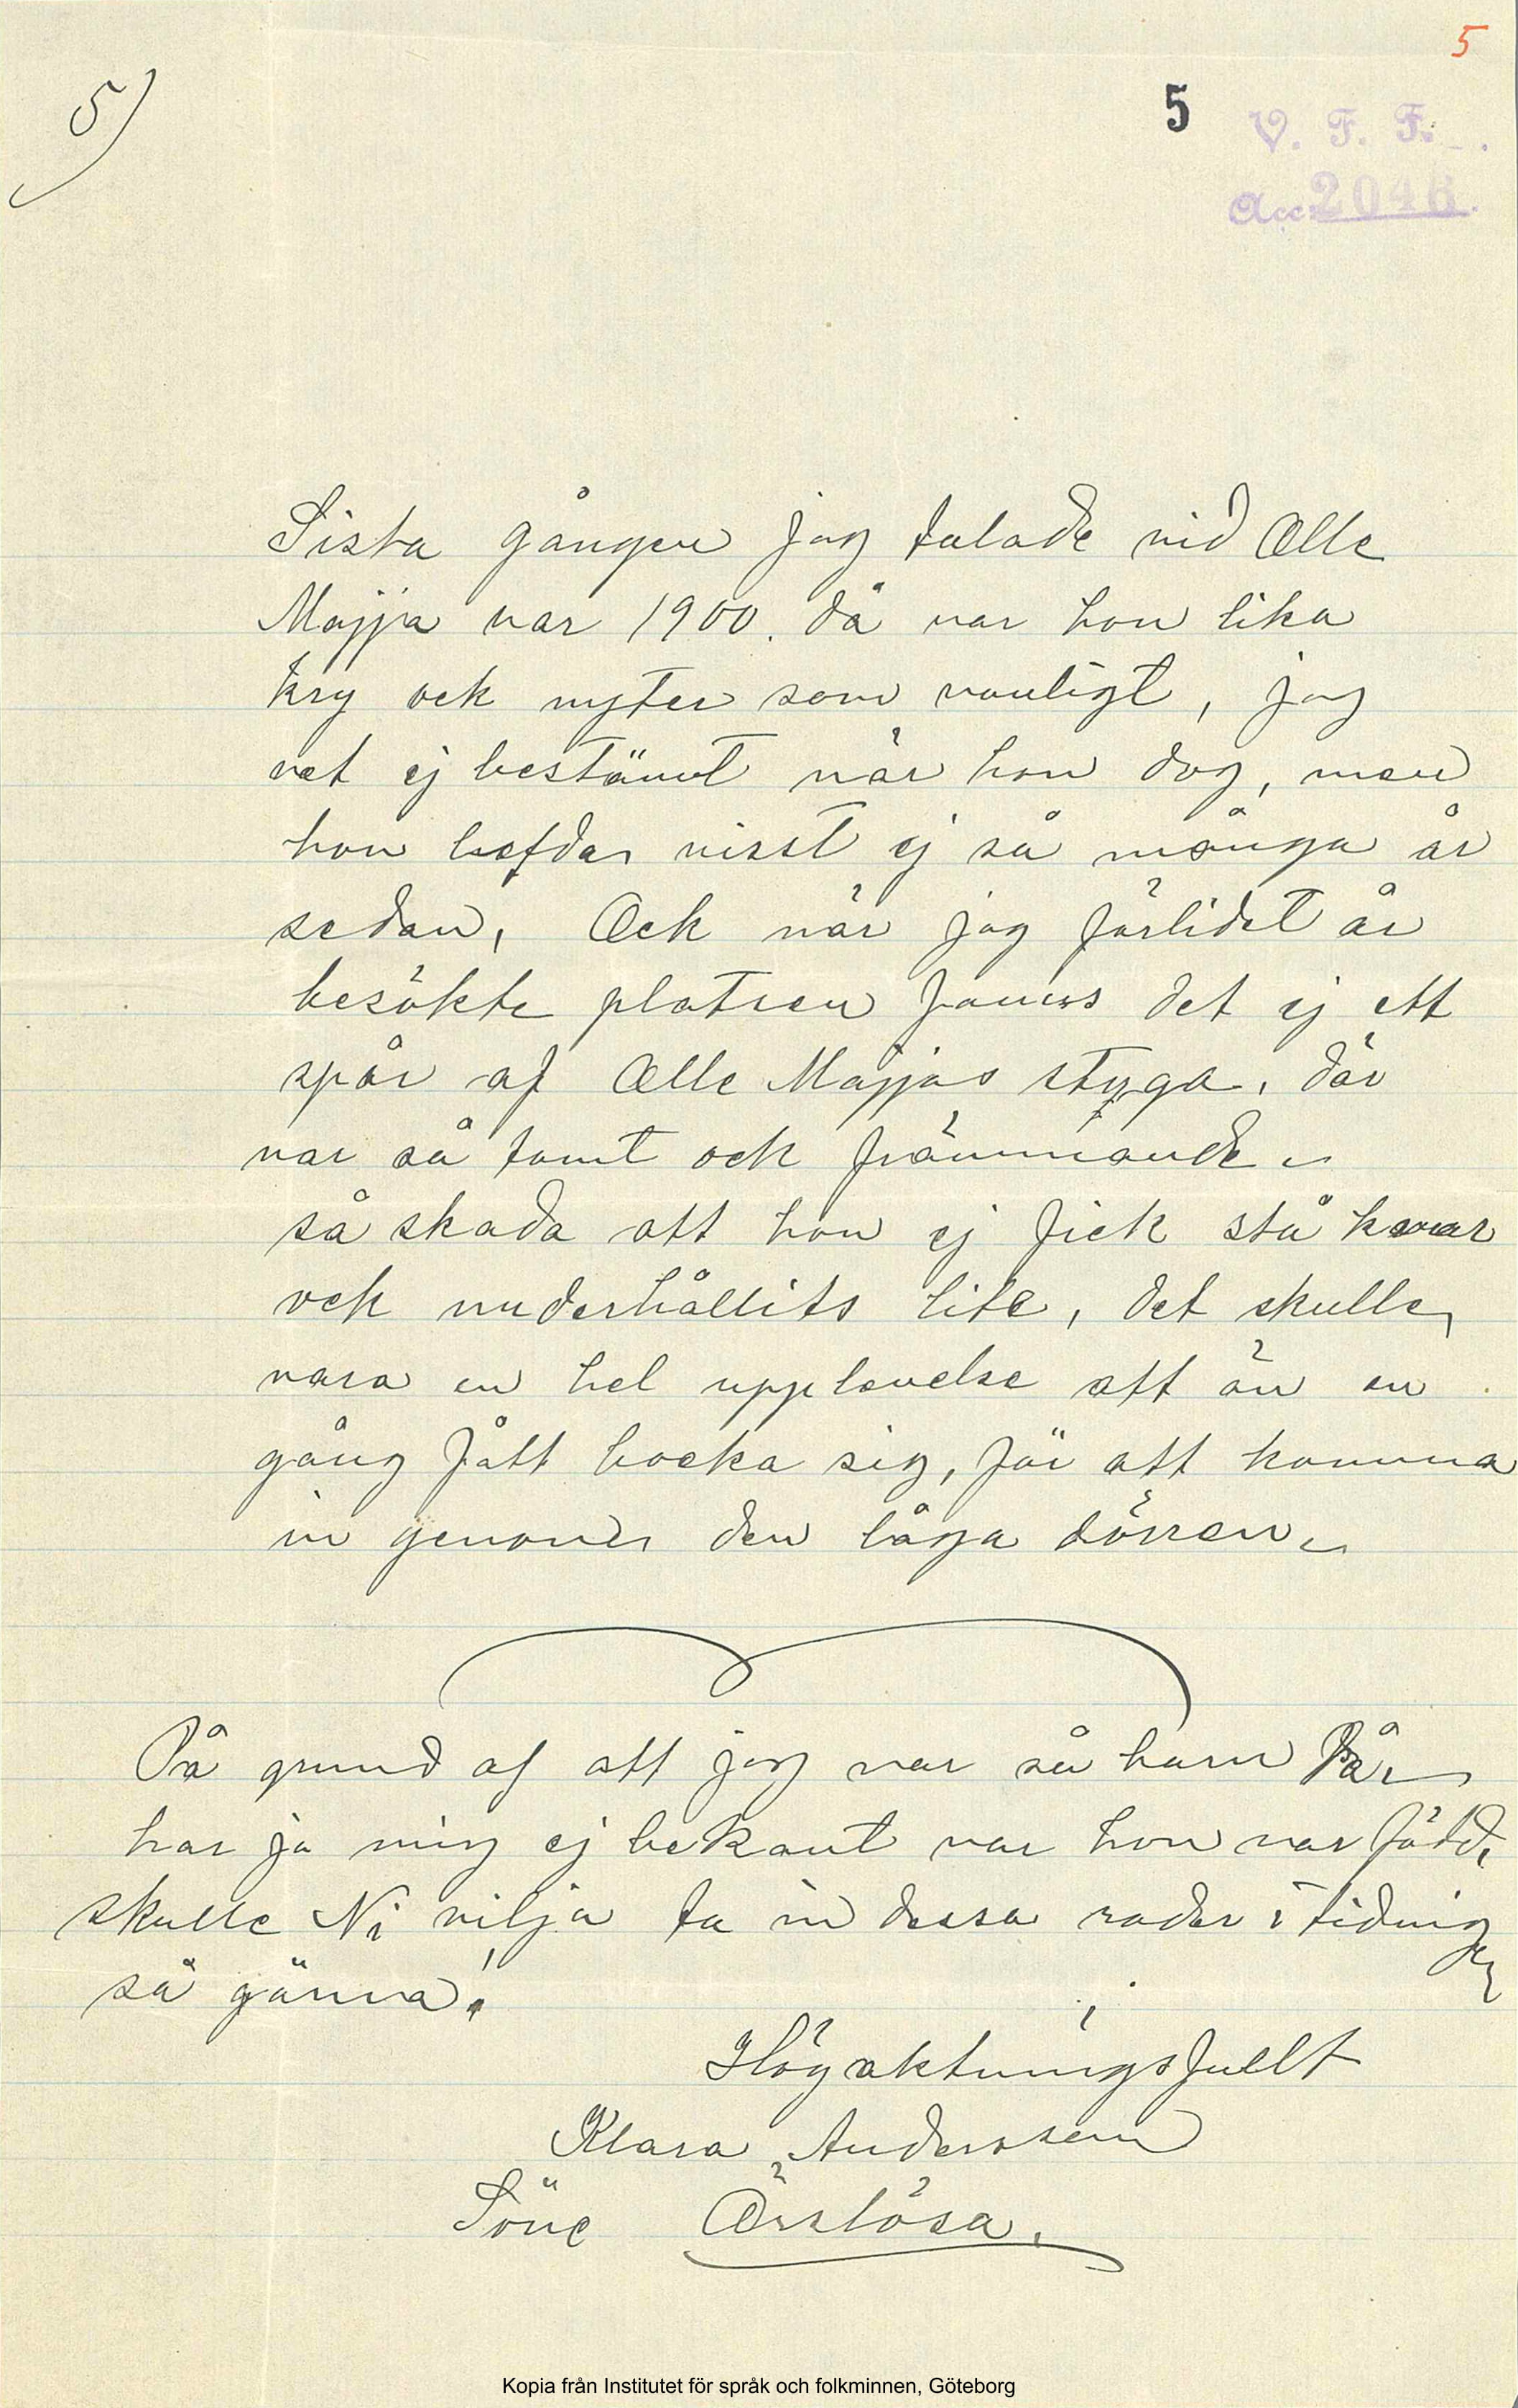 5
5)
5
V. F. F.
Acc 2046.
Sista gången jag talade vid Olle
Majja var 1900. då var hon lika
kry ock nyter som vanligt, jag
vet ej bestämt när hon dog, men
hon lefder visst ej så många år
sedan, Ock när jag förlidet år
besökte platsen fanns det ej ett
spår af Olle Majjas styga, där
var så tomt ock främmande
så skada att hon ej fick stå kvar
ock underhållits lite, det skulle
vara en hel upplevelse att än en
gång fått bocka sig, för att komma
in genom den låga dörren
På grund af att jag var så barn då
har ja mig ej bekant var hon var född,
skulle Ni vilja ta in dessa rader i tidningen
så gärna!
Högaktningsfullt
Klara Andersson
Söne Örslösa.
Kopia från Institutet för språk och folkminnen, Göteborg